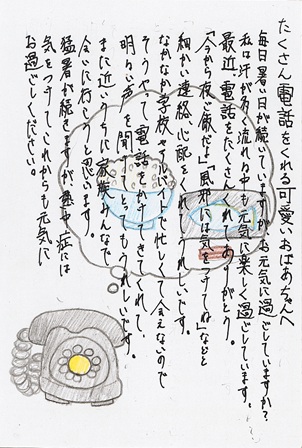 たくさん電話をくれる可愛いおばあちゃんへ
毎日暑い日が続いていますが、お元気に過ごしていますか?
私は汗が流れる中も元気に楽しく過ごしています。
最近、電話をたくさんくれてありがとう。
「今から夜ご飯だよ」「風邪には気をつけてね」などと
細かい連絡、心配をしてくれてうれしいです。
なかなか学校やアルバイトで忙しくて会えないので
そうやって電話をかけてきてくれて、
明るい声を聞けてとってもうれしいです。
また近いうちに家族みんなで
会いに行こうと思います。
猛暑が続きますが熱中症には
気をつけてこれからも元気に
お過ごしくださいね。